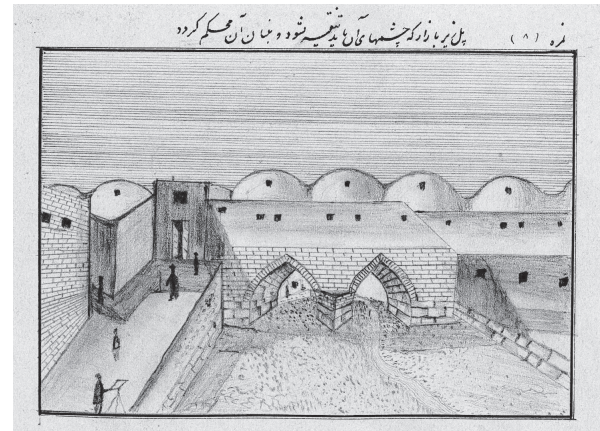 نمره (۸) پل زیر بازار که چشمهای آن باید تنقیه شود و بنیان آن محکم گردد